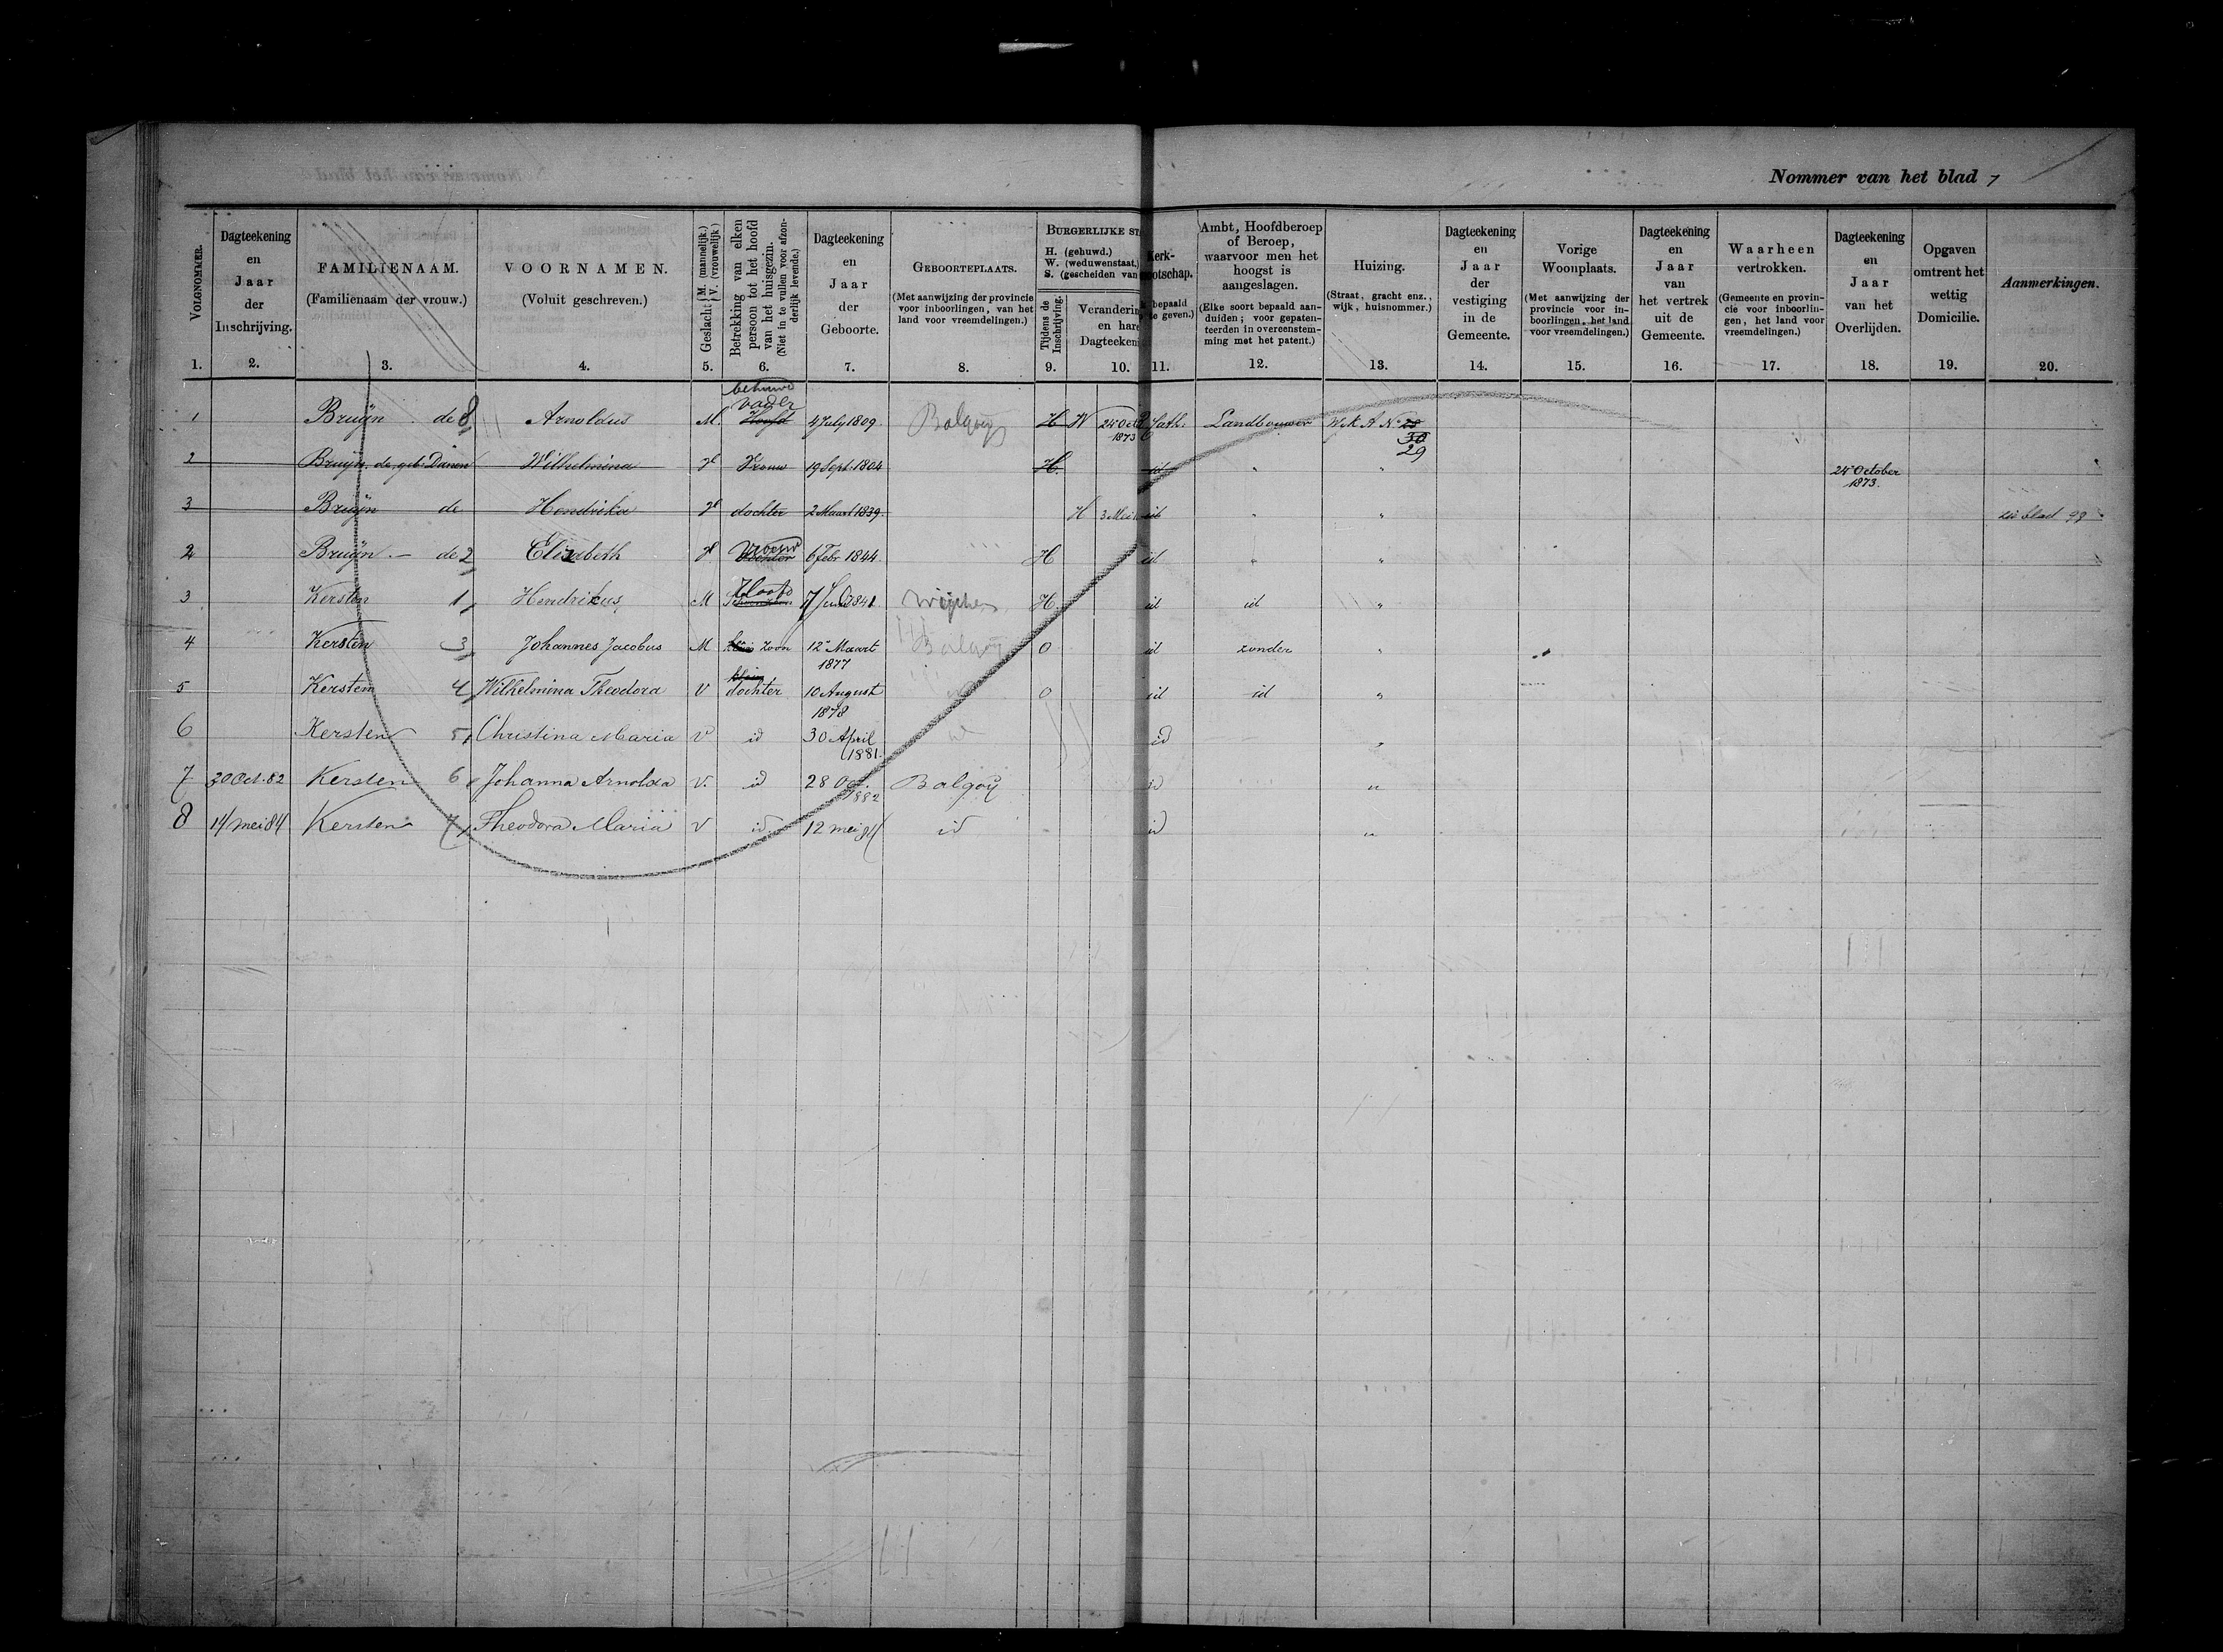 Nommer van het blad 7
VOLGNOMMER. 1.
Dagteekening en Jaar der Inschrijving. 2.
FAMILIENAAM. (Familienaam der vrouw.) 3.
VOORNAMEN. (Voluit geschreven.) 4.
Geslacht M. (mannelijk.) V. (vrouwelijk) 5.
Betrekking van elken persoon tot het hoofd van het huisgezin. (Niet in te vullen voor afzonderlijk levende.) 6.
Dagteekening en Jaar der Geboorte. 7.
GEBOORTEPLAATS. (Met aanwijzing der provincie voor inboorlingen, van het land voor vreemdelingen.) 8.
BURGERLIJKE ST
H. (gehuwd.)
W. (weduwenstaat.)
S. (gescheiden van
Tijdens de Inschrijving. 9.
Veranderin en hare Dagteeken 10.
Kerk- ootschap. bepaald te geven.) 11.
Ambt, Hoofdberoep of Beroep, waarvoor men het hoogst is aangeslagen. (Elke soort bepaald aanduiden; voor gepatenteerden in overeenstemming met het patent.) 12.
Huizing. (Straat, gracht enz., wijk, huisnommer.) 13.
Dagteekening en Jaar der vestiging in de Gemeente. 14.
Vorige Woonplaats. (Met aanwijzing der provincie voor inboorlingen, het land voor vreemdelingen.) 15.
Dagteekening en Jaar van het vertrek uit de Gemeente. 16.
Waarheen vertrokken. (Gemeente en provincie voor inboorlingen, het land voor vreemdelingen.) 17.
Dagteekening en Jaar van het Overlijden. 18.
Opgaven omtrent het wettig Domicilie. 19.
Aanmerkingen. 20.
behuwd
vader
1 Bruijn de 8 Arnoldus M. Hoofd 4 July 1809. Balgoij H W 24 Oct 1873 Kath. Landbouwer Wijk A No 28
30
29
2 Bruijn, de, geb: Danen Wilhelmina V Vrouw 19 Sept. 1804 H. id " " 24 October 1873.
3 Bruijn de Hendrika V dochter 2 Maart 1839. H 3 Mei id " " zie blad 99
2 Bruijn - de 2 Elizabeth V dochter vrouw 6 Febr 1844. H id " "
3 Kersten 1 Hendrikus M Hoofd 7 Juni 1841. Wijchen H. id id "
4 Kersten 3 Johannes Jacobus M klein zoon 12 Maart 1877 Balgoij O id zonder "
5 Kersten 4 Wilhelmina Theodora V klein dochter 10 August 1878 id O id id "
6 Kersten 5 Christina Maria V id 30 April 1881. id id "
7 30 Oct. 82 Kersten 6 Johanna Arnolda V. id 28 Oct. 1882 Balgoij id "
8 14 mei 84 Kersten 7 Theodora Maria V id 12 mei 84 id id "